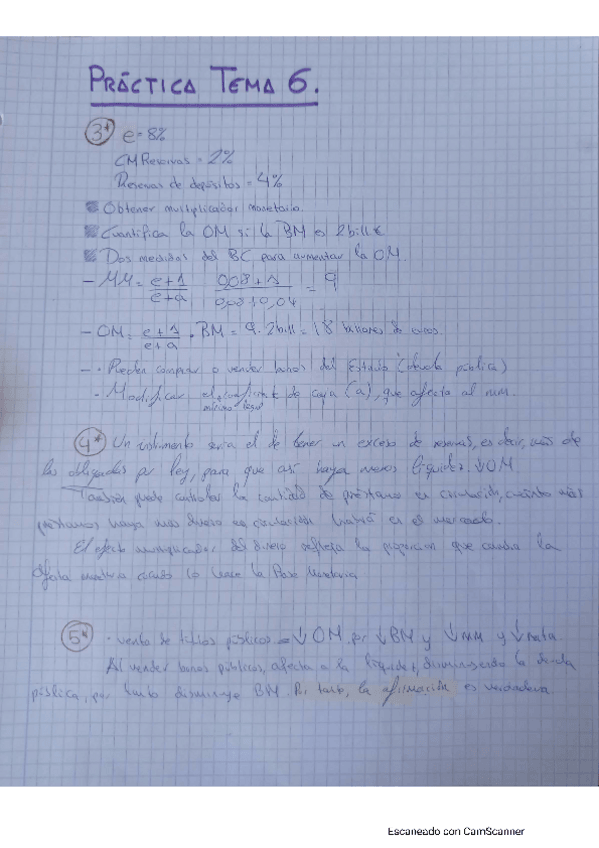 PRÁCTICA TEMA 6.
3* e = 8%
CM Reservas = 2%
Reservas de depósitos = 4%
Obtener multiplicador monetario.
Cuantifica la OM si la BM es 2bill €
Dos medidas del BC para aumentar la OM.
- MM = e+1 / e+a 0,08+1 / 0,08+0,04 = 9
- OM = e+1 / e+a · BM = 9 · 2bill = 18 billones de euros.
- · Pueden comprar o vender bonos del Estado (deuda pública)
- Modificar el coeficiente de caja (a), que afecta al mm.
mínimo legal
4* Un instrumento sería el de tener un exceso de reservas, es decir, más de
las obligadas por ley, para que así haya menos liquidez. ↓OM
También puede controlar la cantidad de préstamos en circulación, cuánto más
préstamos haya más dinero en circulación habrá en el mercado.
El efecto multiplicador del dinero refleja la proporción que cambia la
Oferta monetaria cuando lo hace la Base Monetaria
5* · venta de títulos públicos = ↓OM por ↓BM y ↓mm y ↓
Al vender bonos públicos, afecta a la liquidez, disminuyendo la deuda
pública, por tanto disminuye BM. Por tanto, la afirmación es verdadera.
Escaneado con CamScanner